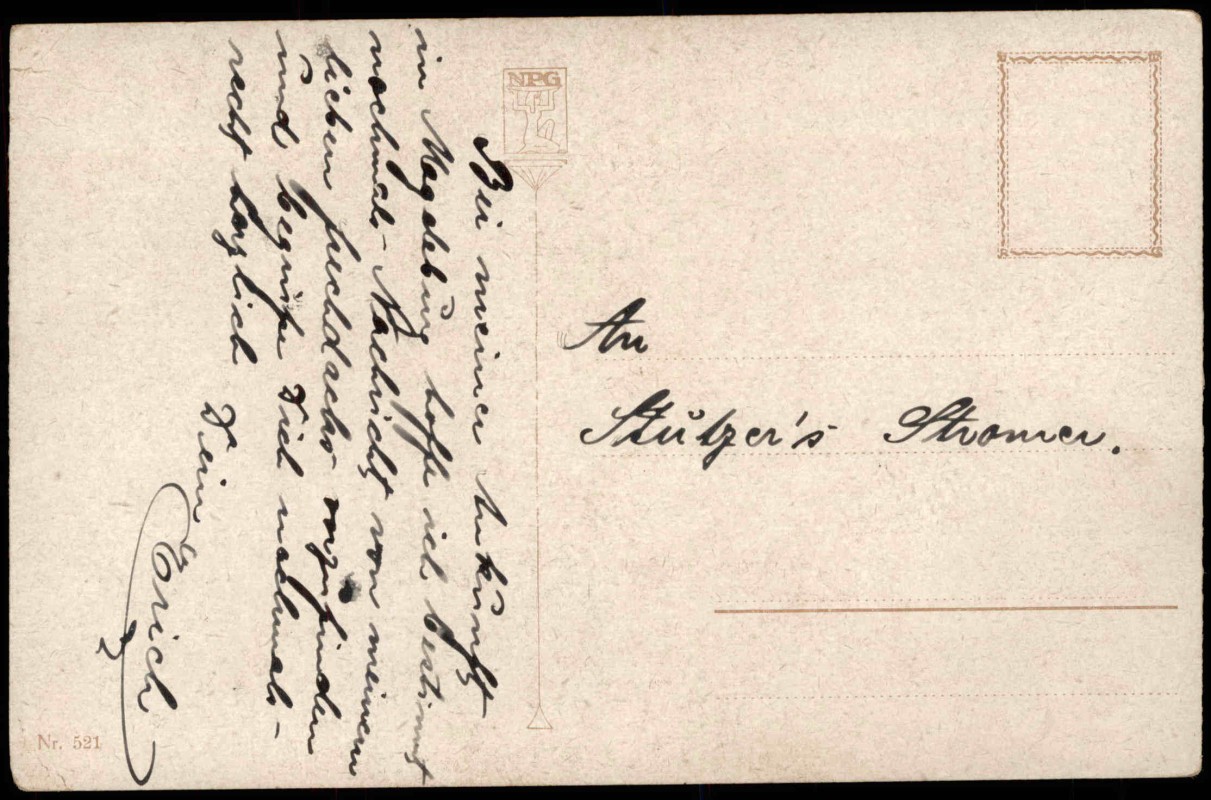 Bei meiner Ankunft
in Magdeburg hoffe ich bestimmt
nochmals Nachricht von meinem
lieben vorzufinden
und begrüße Dich nochmals
recht herzlich
Dein
Erich
NPG
An
Stützer's Stromer.
Nr. 521